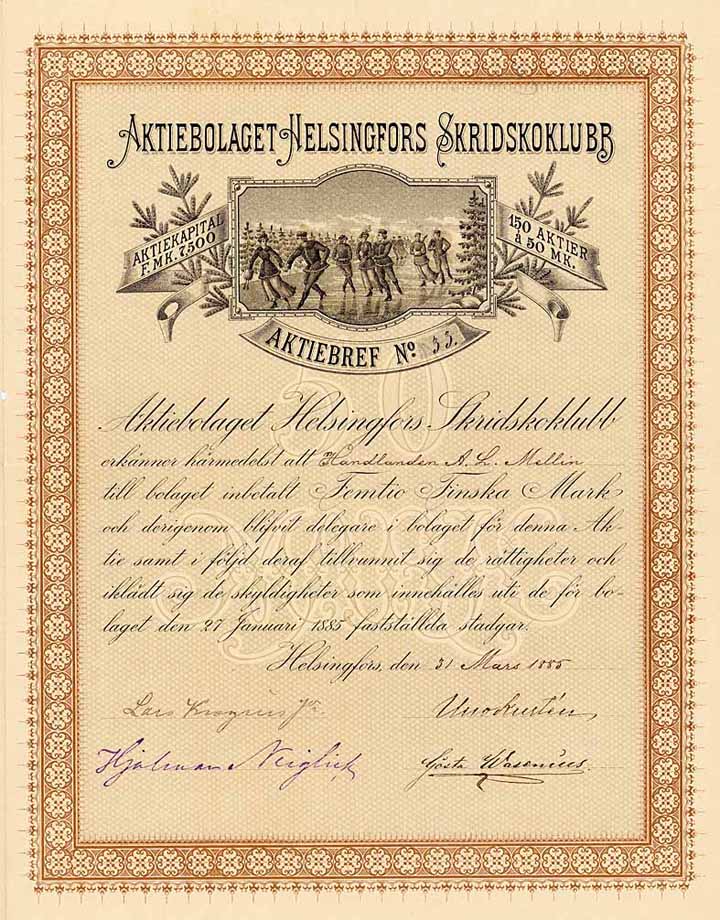 AKTIEBOLAGET HELSINGFORS SKRIDSKOKLUBB
AKTIEKAPITAL
F. MK. 7,500
150 AKTIER
à 50 MK.
AKTIEBREF No 33.
50
MARK
Aktiebolaget Helsingfors Skridskoklubb
erkänner härmedelst att Handlanden A. L. Mellin
till bolaget inbetalt Femtio Finska Mark
och derigenom blifvit delegare i bolaget för denna Ak-
tie samt i följd deraf tillvunnit sig de rättigheter och
iklädt sig de skyldigheter som innehålles uti de för bo-
laget den 27 Januari 1885 fastställda stadgar.
Helsingfors, den 31 Mars 1885
Lars Krogius Jr.
Uno Kurtén
Hjalmar Neiglick
Gösta Wasenius.